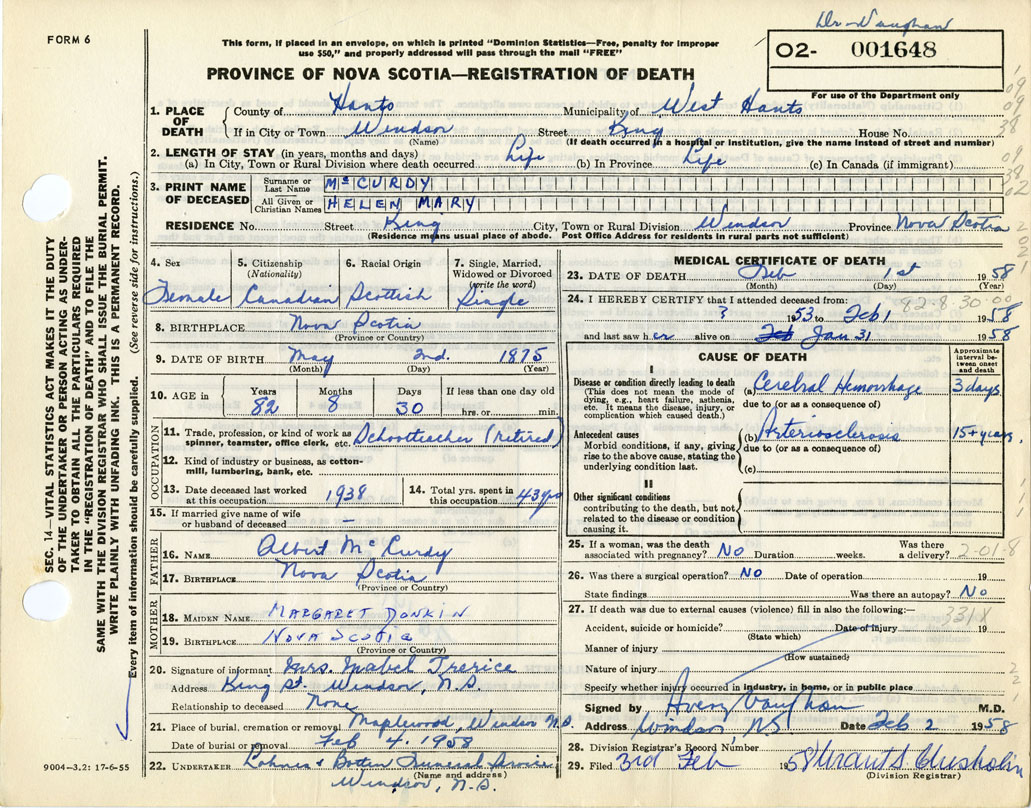 Dr Vaughan
FORM 6
This form, if placed in an envelope, on which is printed "Dominion Statistics—Free, penalty for improper
use $50," and properly addressed will pass through the mail "FREE"
O2- 001648
For use of the Department only
PROVINCE OF NOVA SCOTIA—REGISTRATION OF DEATH
1. PLACE OF DEATH County of Hants Municipality of West Hants
If in City or Town Windsor Street King House No.
(Name) (If death occurred in a hospital or institution, give the name instead of street and number)
2. LENGTH OF STAY (in years, months and days)
(a) In City, Town or Rural Division where death occurred Life (b) In Province Life (c) In Canada (if immigrant)
3. PRINT NAME OF DECEASED Surname or Last Name McCURDY
All Given or Christian Names HELEN MARY
RESIDENCE No. Street King City, Town or Rural Division Windsor Province Nova Scotia
(Residence means usual place of abode. Post Office Address for residents in rural parts not sufficient)
4. Sex Female
5. Citizenship (Nationality) Canadian
6. Racial Origin Scottish
7. Single, Married, Widowed or Divorced (write the word) Single
8. BIRTHPLACE Nova Scotia
(Province or Country)
9. DATE OF BIRTH May 2nd. 1875
(Month) (Day) (Year)
10. AGE in Years 82 Months 8 Days 30 If less than one day old hrs. or min.
OCCUPATION
11. Trade, profession, or kind of work as spinner, teamster, office clerk, etc. Schoolteacher (retired)
12. Kind of industry or business, as cotton-mill, lumbering, bank, etc.
13. Date deceased last worked at this occupation 1938
14. Total yrs. spent in this occupation 43 yrs
15. If married give name of wife or husband of deceased —
FATHER
16. NAME Albert McCurdy
17. BIRTHPLACE Nova Scotia
(Province or Country)
MOTHER
18. MAIDEN NAME MARGARET DONKIN
19. BIRTHPLACE NOVA SCOTIA
(Province or Country)
20. Signature of informant Mrs. Isabel Trerice
Address King St. Windsor, N.S.
Relationship to deceased None
21. Place of burial, cremation or removal Maplewood, Windsor N.S.
Date of burial or removal Feb 4, 1958
22. UNDERTAKER Funeral
(Name and address)
Windsor, N.S.
MEDICAL CERTIFICATE OF DEATH
23. DATE OF DEATH Feb 1st 1958
(Month) (Day) (Year)
82-8-30-00
24. I HEREBY CERTIFY that I attended deceased from:
? 1953 to Feb 1 1958
and last saw her alive on Feb Jan 31 1958
CAUSE OF DEATH
Approximate interval between onset and death
I
Disease or condition directly leading to death (a) Cerebral Hemorrhage 3 days
(This does not mean the mode of dying, e.g., heart failure, asthenia, etc. It means the disease, injury, or complication which caused death.)
due to (or as a consequence of)
Antecedent causes (b) Arteriosclerosis 15+ years
Morbid conditions, if any, giving rise to the above cause, stating the underlying condition last.
due to (or as a consequence of)
(c)
II
Other significant conditions
contributing to the death, but not related to the disease or condition causing it.
25. If a woman, was the death associated with pregnancy? No Duration weeks. Was there a delivery?
2-01-8
26. Was there a surgical operation? NO Date of operation 19
State findings Was there an autopsy? No
27. If death was due to external causes (violence) fill in also the following:—
331X
Accident, suicide or homicide? Date of injury 19
(State which)
Manner of injury
(How sustained)
Nature of injury
Specify whether injury occurred in industry, in home, or in public place
Signed by Avery Vaughan M.D.
Address Windsor, NS Date Feb 2 1958
28. Division Registrar's Record Number
29. Filed 3rd Feb 1958 Chisholm
(Division Registrar)
SEC. 14—VITAL STATISTICS ACT MAKES IT THE DUTY
OF THE UNDERTAKER OR PERSON ACTING AS UNDER-
TAKER TO OBTAIN ALL THE PARTICULARS REQUIRED
IN THE "REGISTRATION OF DEATH" AND TO FILE THE
SAME WITH THE DIVISION REGISTRAR WHO SHALL ISSUE THE BURIAL PERMIT.
WRITE PLAINLY WITH UNFADING INK. THIS IS A PERMANENT RECORD.
Every item of information should be carefully supplied. (See reverse side for instructions.)
9004-3.2: 17-6-55